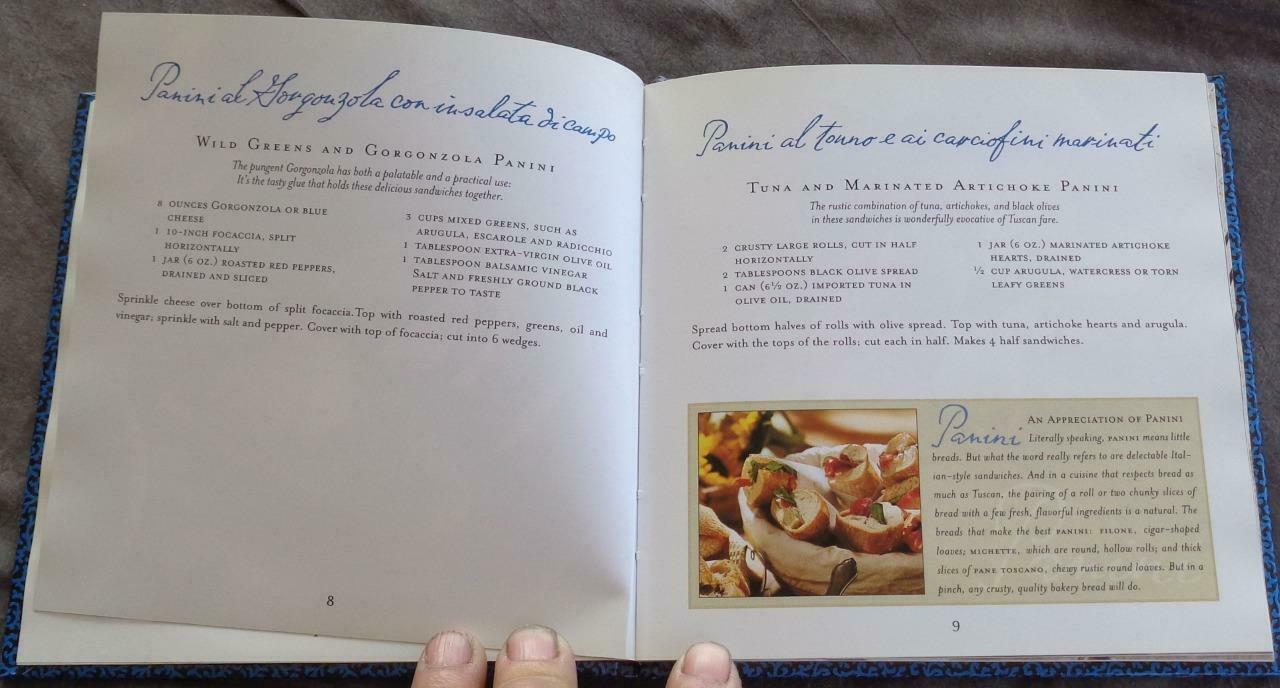 Panini al Gorgonzola con insalata di campo
WILD GREENS AND GORGONZOLA PANINI
The pungent Gorgonzola has both a palatable and a practical use:
It's the tasty glue that holds these delicious sandwiches together.
8 OUNCES GORGONZOLA OR BLUE
CHEESE
1 10-INCH FOCACCIA, SPLIT
HORIZONTALLY
1 JAR (6 OZ.) ROASTED RED PEPPERS,
DRAINED AND SLICED
3 CUPS MIXED GREENS, SUCH AS
ARUGULA, ESCAROLE AND RADICCHIO
1 TABLESPOON EXTRA-VIRGIN OLIVE OIL
1 TABLESPOON BALSAMIC VINEGAR
SALT AND FRESHLY GROUND BLACK
PEPPER TO TASTE
Sprinkle cheese over bottom of split focaccia. Top with roasted red peppers, greens, oil and
vinegar; sprinkle with salt and pepper. Cover with top of focaccia; cut into 6 wedges.
8
Panini al tonno e ai carciofini marinati
TUNA AND MARINATED ARTICHOKE PANINI
The rustic combination of tuna, artichokes, and black olives
in these sandwiches is wonderfully evocative of Tuscan fare.
2 CRUSTY LARGE ROLLS, CUT IN HALF
HORIZONTALLY
2 TABLESPOONS BLACK OLIVE SPREAD
1 CAN (6½ OZ.) IMPORTED TUNA IN
OLIVE OIL, DRAINED
1 JAR (6 OZ.) MARINATED ARTICHOKE
HEARTS, DRAINED
½ CUP ARUGULA, WATERCRESS OR TORN
LEAFY GREENS
Spread bottom halves of rolls with olive spread. Top with tuna, artichoke hearts and arugula.
Cover with the tops of the rolls; cut each in half. Makes 4 half sandwiches.
AN APPRECIATION OF PANINI
Panini Literally speaking, PANINI means little
breads. But what the word really refers to are delectable Ital-
ian-style sandwiches. And in a cuisine that respects bread as
much as Tuscan, the pairing of a roll or two chunky slices of
bread with a few fresh, flavorful ingredients is a natural. The
breads that make the best PANINI: FILONE, cigar-shaped
loaves; MICHETTE, which are round, hollow rolls; and thick
slices of PANE TOSCANO, chewy rustic round loaves. But in a
pinch, any crusty, quality bakery bread will do.
9